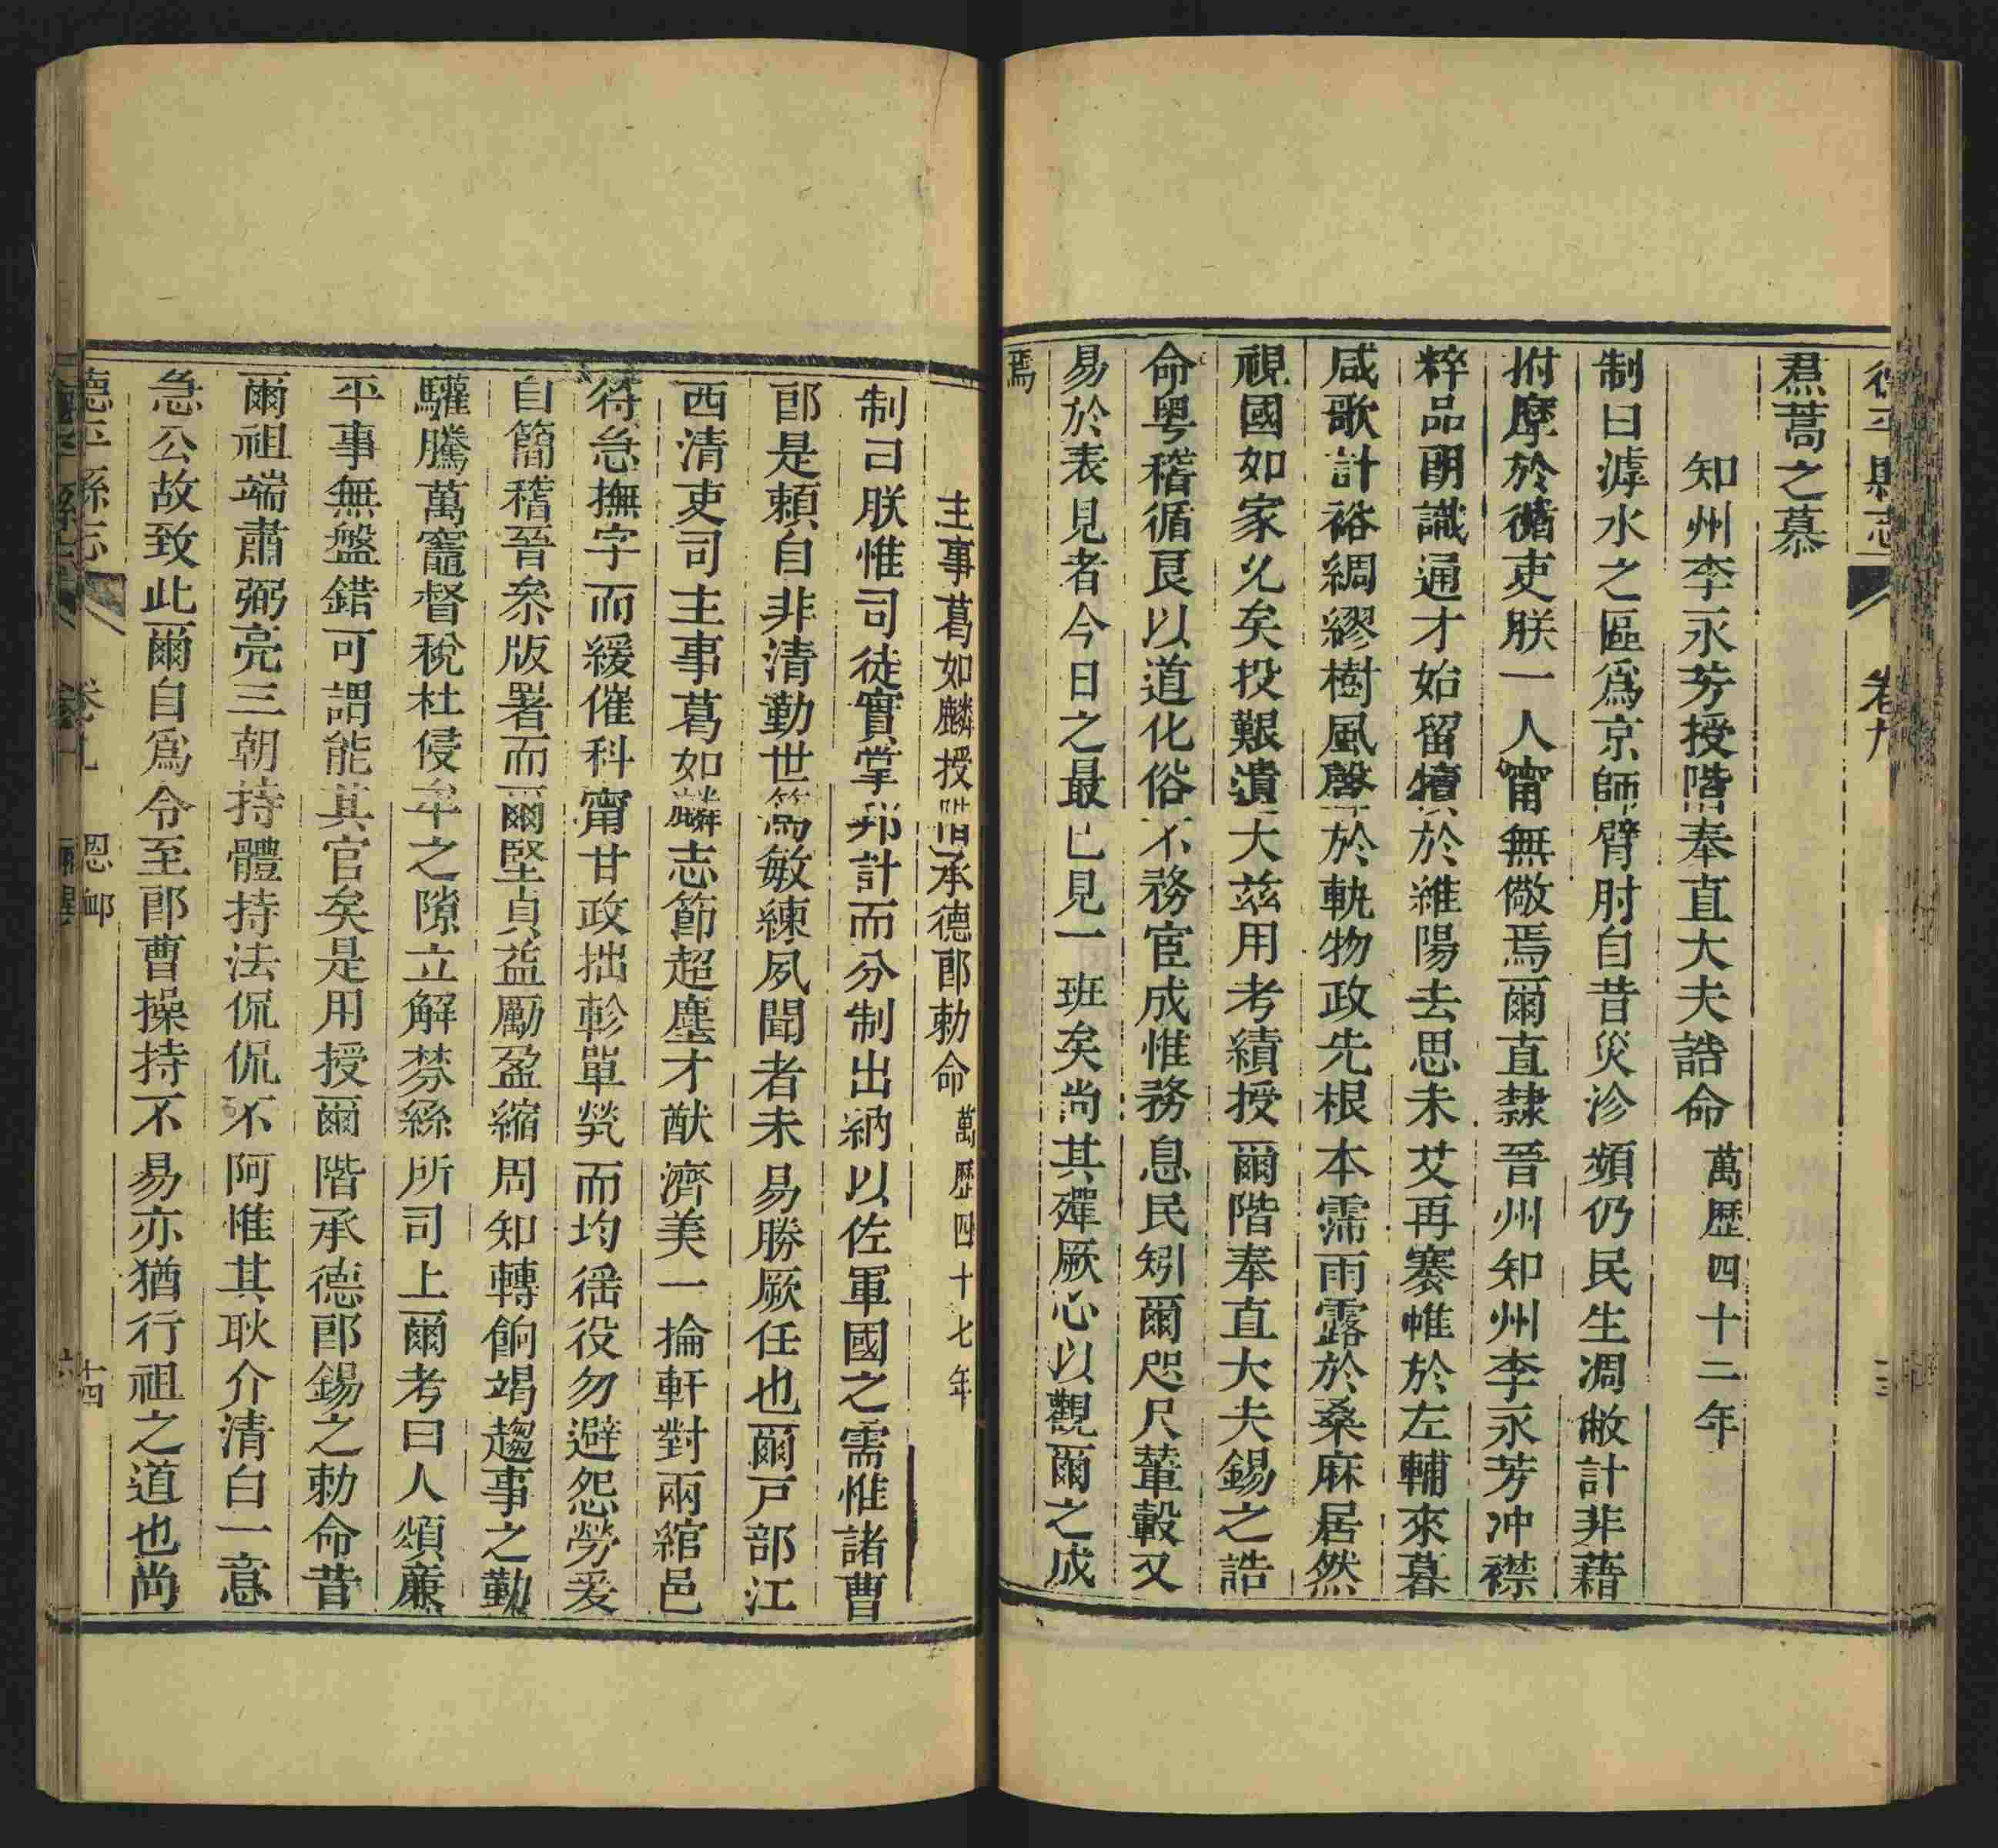 德平縣志 卷九
焄蒿之慕
知州李永芳授階奉直大夫誥命 萬歷四十二年
制曰滹水之區爲京師臂肘自昔災沴頻仍民生凋敝計非藉
拊摩於循吏朕一人甯無儆焉爾直隸晉州知州李永芳冲襟
粹品朗識通才始留犢於維陽去思未艾再褰帷於左輔來暮
咸歌計裕綢繆樹風聲於軌物政先根本霈雨露於桑麻居然
視國如家允矣投艱濆大茲用考績授爾階奉直大夫錫之誥
命粤稽循良以道化俗不務宦成惟務息民矧爾咫尺輦轂又
易於表見者今日之最已見一班矣尚其殫厥心以觀爾之成
焉
主事葛如麟授階承德郎勅命 萬歷四十七年
制曰朕惟司徒實掌邦計而分制出納以佐軍國之需惟諸曹
郎是賴自非清勤世篤敏練夙聞者未易勝厥任也爾戸部江
西清吏司主事葛如麟志節超塵才猷濟美一掄軒對兩綰邑
符急撫字而緩催科甯甘政拙軫單煢而均徭役勿避怨勞爰
自簡稽晉叅版署而爾堅貞益勵盈縮周知轉餉竭趨事之勤
驩騰萬竈督稅杜侵牟之隙立解棼絲所司上爾考曰人頌亷
平事無盤錯可謂能其官矣是用授爾階承德郎錫之勅命昔
爾祖端肅弼亮三朝持體持法侃侃不阿惟其耿介清白一意
急公故致此爾自爲令至郎曹操持不易亦猶行祖之道也尚
德平縣志 卷九 恩卹 十四